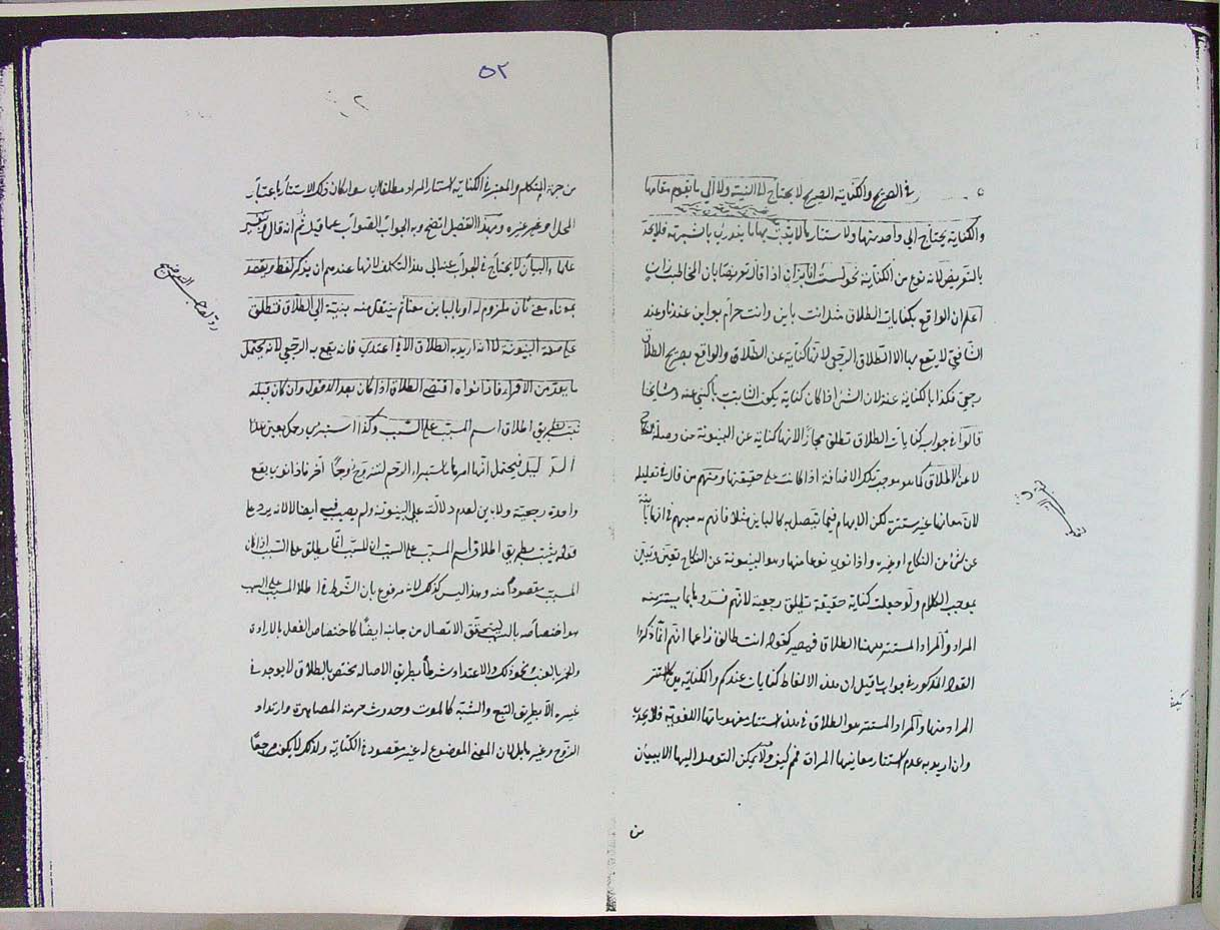 في الصريح والكناية الصريح لا يحتاج الى النية ولا الى ما يقوم مقامها
والكناية يحتاج الى واحد منها ولاستتارها لا يثبت بها ما يندرئ بالشبهة فلا يحد
بالتعريض لانه نوع من الكناية نحو لست انا بزان اذا قال تعريضا بان المخاطب زان
اعلم ان الواقع بكنايات الطلاق مثل انت باين وانت حرام بواين عندنا وعند
الشافعي لا يقع بها الا الطلاق الرجعي لانها كناية عن الطلاق والواقع بصريح الطلاق
رجعي فكذا بالكناية عنه لان الشئ اذا كان كناية يكون الثابت بالمكني عنه ومشايخنا
قالوا في جوابه كنايات الطلاق تطلق مجازا لانها كناية عن البينونة من وصلة النكاح
لا عن الطلاق كما هو موجب تلك الاضافة اذا كانت على حقيقتها ومنهم من قال في تعليله
لان معانيها غير مستترة لكن الابهام فيما يتصل به كالباين مثلا فانه مبهم في انها باينة
عن شئ من النكاح او غيره واذا نوى نوعا منها وهو البينونة عن النكاح تعين وتبين
بموجب الكلام ولو جعلت كناية حقيقة تطلق رجعية لانهم فسروها بما يستتر منه
المراد والمراد المستتر ههنا الطلاق فيصير كقوله انت طالق زاعما انهم انما ذكروا
القول المذكور في جواب ما قيل ان هذه الالفاظ كنايات عندكم والكناية ما استتر
المراد منها والمراد المستتر هو الطلاق في هذه
وان اريد به عدم استتار معانيها المرادة فمم كيف ولا يمكن التوصل اليها الا ببيان
من
٥٢
٢
من جهة المتكلم والمعتبر في الكناية استتار المراد مطلقا سواء كان ذلك الاستتار باعتبار
المحل او غيره وبهذا التفصيل اتضح وجه الجواب الصواب عما قيل ثم انه قال وبتفسير
علماء البيان لا يحتاج في الجواب عنه الى هذا التكلف لانها عندهم ان يذكر لفظ ويقصد
بمعناه معنى ثان ملزوم له اريد بالباين معناه ثم ينتقل منه بنيته الى الطلاق فتطلق
على صفة البينونة لا انه اريد به الطلاق الا في اعتدى فانه يقع به الرجعي لانه يحتمل
ما يعد من الاقراء فاذا نواه اقتضى الطلاق اذا كان بعد الدخول وان كان قبله
يثبت بطريق اطلاق اسم المسبب على السبب وكذا استبرئي رحمك بعين هذا
الدليل فيحتمل انها امر بالاستبراء الرحم لتتزوج زوجا آخر فاذا نوى يقع
واحدة رجعية ولا باين لعدم دلالته على البينونة ولم يصب فيه ايضا لانه يرد على
قوله يثبت بطريق اطلاق اسم المسبب على السبب ان المسبب انما يطلق على السبب اذا كان
المسبب مقصودا منه وهذا ليس كذلك لانه مرفوع بان الشرط في اطلاق المسبب على السبب
هو اختصاصه بالسبب ليتحقق الاتصال من جانبه ايضا كاختصاص الفعل بالارادة
والخمر بالعنب ونحو ذلك والاعتداد شرعا بطريق الاصالة مختص بالطلاق لا يوجد في
غيره الا بطريق التبع والشبه كالموت وحدوث حرمة المصاهرة وارتداد
الزوج وغيره بل لان المعنى الموضوع له غير مقصود في الكناية ولذلك لا يكون مرجعا